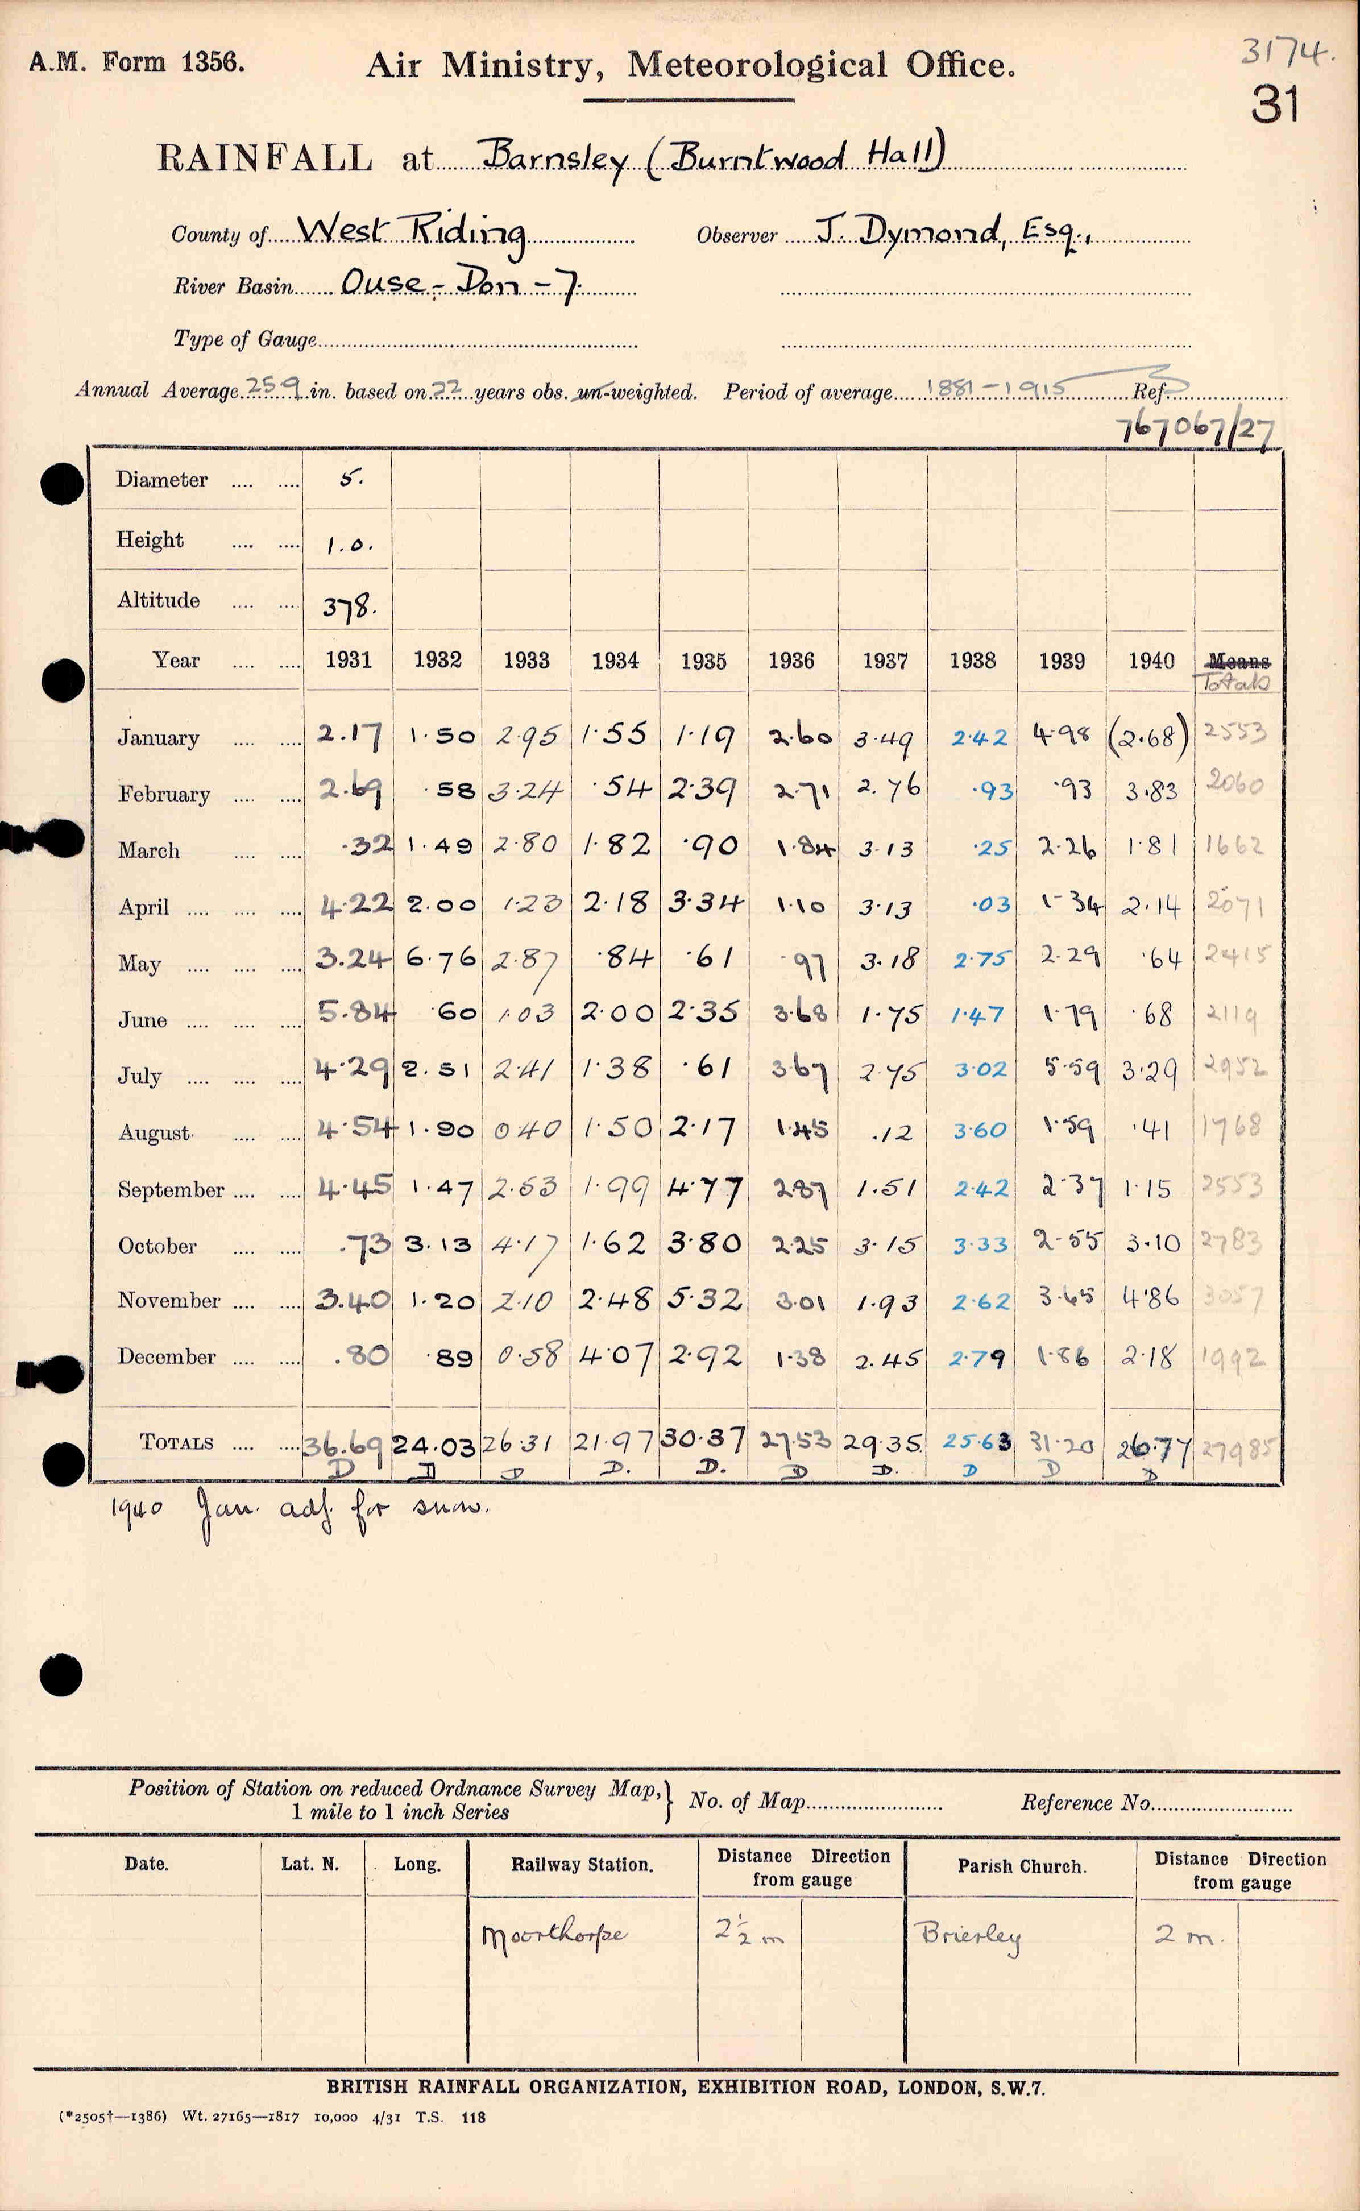 A.M. Form 1356.
Air Ministry, Meteorological Office.
3174.
31
RAINFALL at Barnsley (Burntwood Hall)
County of West Riding Observer J. Dymond, Esq.,
River Basin Ouse - Don - 7.
Type of Gauge
Annual Average 25.9 in. based on 22 years obs. un-weighted. Period of average 1881-1915 Ref.
767067/27
Diameter 5.
Height 1.0.
Altitude 378.
Year 1931 1932 1933 1934 1935 1936 1937 1938 1939 1940 Means
Totals
January 2.17 1.50 2.95 1.55 1.19 2.60 3.49 2.42 4.98 (2.68) 2553
February 2.69 .58 3.24 .54 2.39 2.71 2.76 .93 .93 3.83 2060
March .32 1.49 2.80 1.82 .90 1.84 3.13 .25 2.26 1.81 1662
April 4.22 2.00 1.23 2.18 3.34 1.10 3.13 .03 1.34 2.14 2071
May 3.24 6.76 2.87 .84 .61 .97 3.18 2.75 2.29 .64 2415
June 5.84 .60 1.03 2.00 2.35 3.68 1.75 1.47 1.79 .68 2119
July 4.29 2.51 2.41 1.38 .61 3.67 2.75 3.02 5.59 3.29 2952
August 4.54 1.90 0.40 1.50 2.17 1.45 .12 3.60 1.59 .41 1768
September 4.45 1.47 2.53 1.99 4.77 2.87 1.51 2.42 2.37 1.15 2553
October .73 3.13 4.17 1.62 3.80 2.25 3.15 3.33 2.55 3.10 2783
November 3.40 1.20 2.10 2.48 5.32 3.01 1.93 2.62 3.65 4.86 3057
December .80 .89 0.58 4.07 2.92 1.38 2.45 2.79 1.86 2.18 1992
TOTALS 36.69 24.03 26.31 21.97 30.37 27.53 29.35 25.63 31.20 26.77 27985
D D D D. D. D D. D D D
1940 Jan. adj. for snow.
Position of Station on reduced Ordnance Survey Map, } No. of Map Reference No.
1 mile to 1 inch Series
Date. Lat. N. Long. Railway Station. Distance Direction from gauge Parish Church. Distance Direction from gauge
Moorthorpe 2½ m Brierley 2 m.
BRITISH RAINFALL ORGANIZATION, EXHIBITION ROAD, LONDON, S.W.7.
(*2505†—1386) Wt. 27165—1817 10,000 4/31 T.S. 118